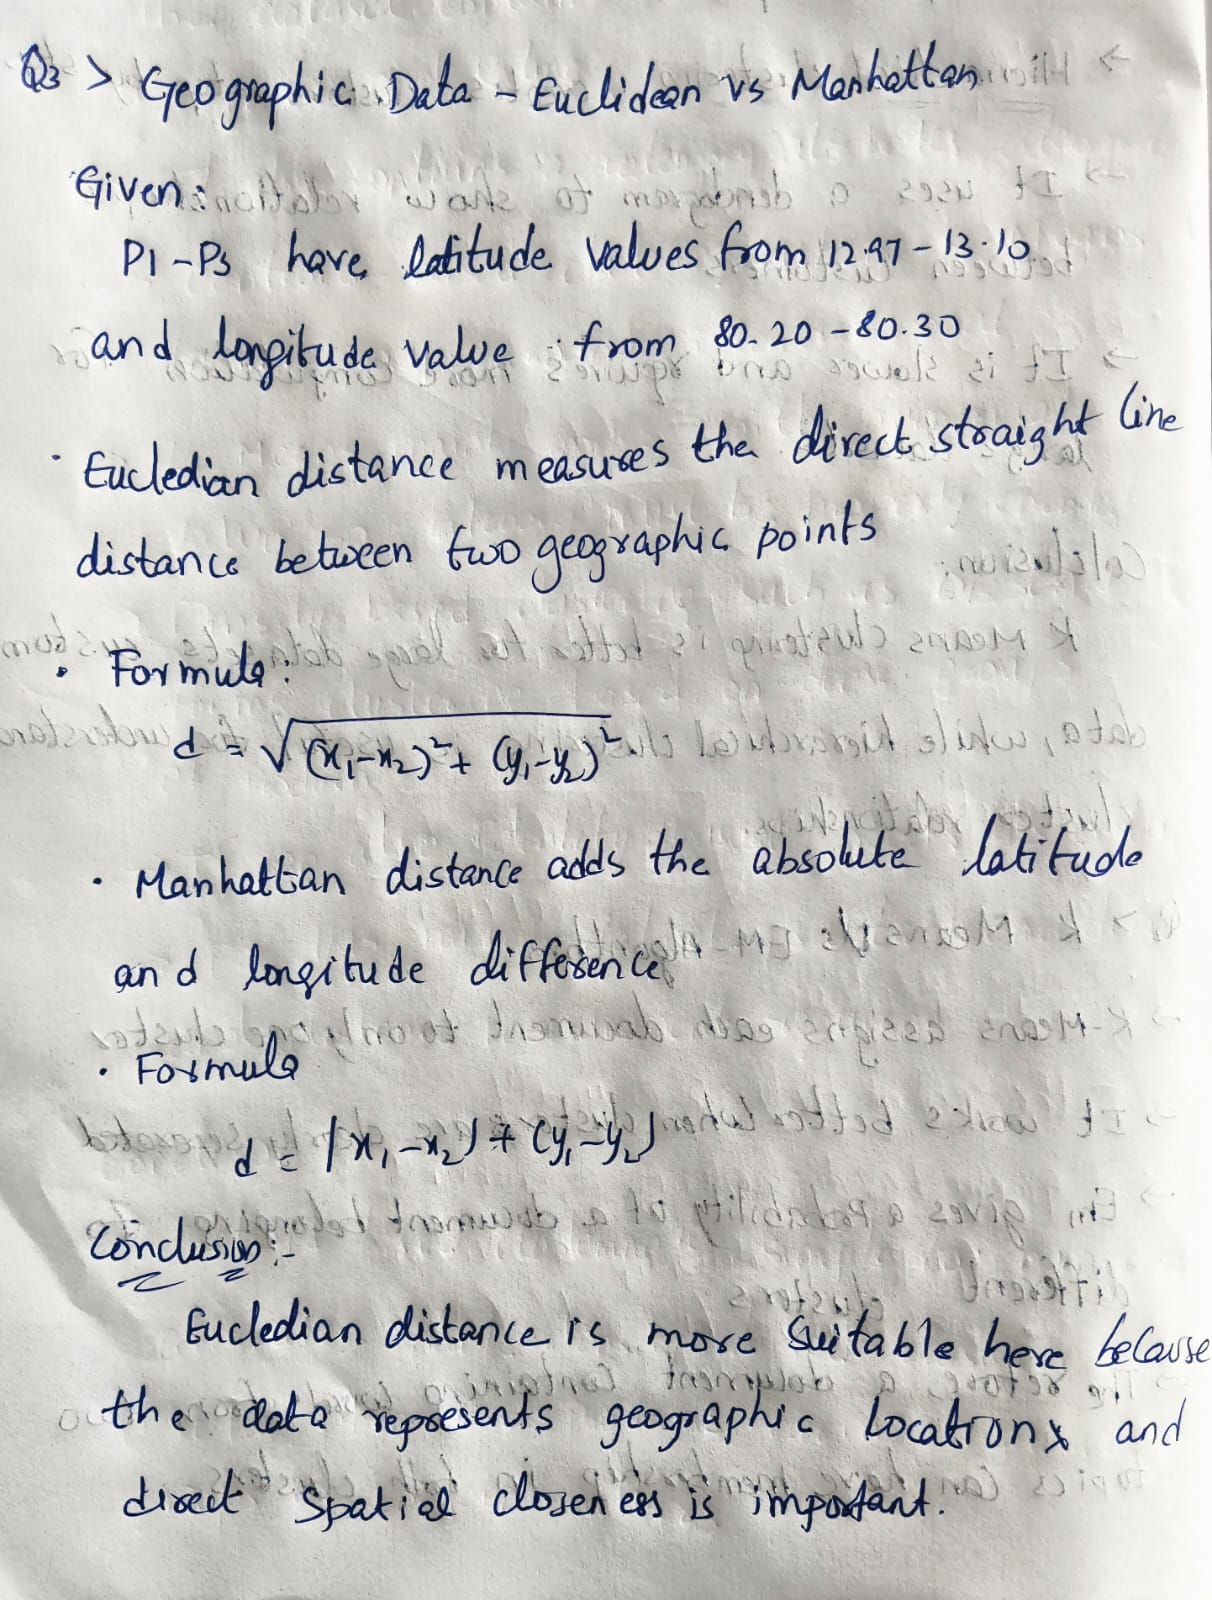 Q3 > Geographic Data - Euclidean vs Manhattan
Given:
P1 - P5 have latitude values from 12.97 - 13.10
and longitude value from 80.20 - 80.30
• Eucledian distance measures the direct straight line
distance between two geographic points
• Formula:
d = √(x₁-x₂)² + (y₁-y₂)²
• Manhattan distance adds the absolute latitude
and longitude difference
• Formula
d = |x₁-x₂| + (y₁-y₂)
Conclusion:-
Eucledian distance is more suitable here because
the data represents geographic locations and
direct spatial closeness is important.